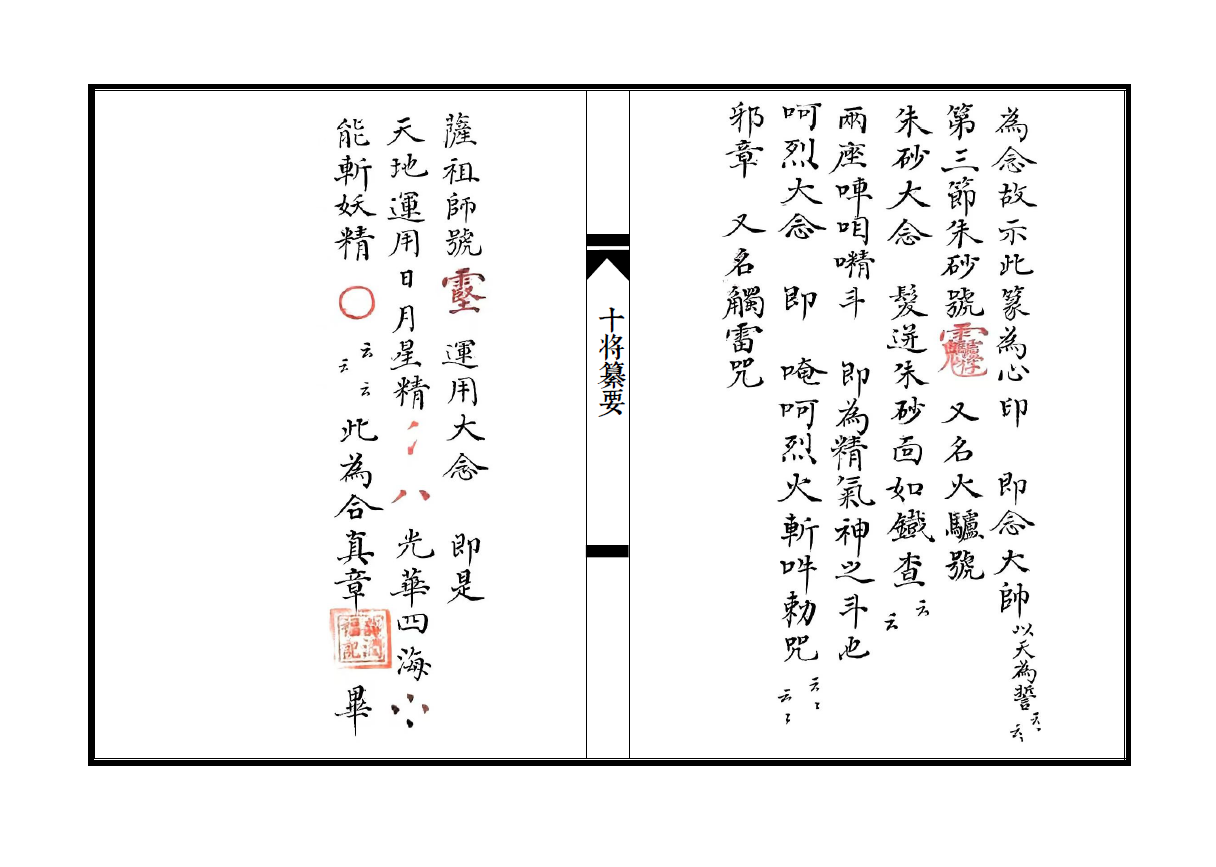 為念故示此篆為心印　即念大帥以天為誓云云
第三節朱砂號　又名火驢號
朱砂大念　髮迸朱砂面如鐵查云云
兩座唓咱㗌斗　即為精氣神之斗也
呵烈大念　即　唵呵烈火斬吽勅咒云云
邪章　又名觸雷咒
十将纂要
薩祖師號　運用大念　即是
天地運用日月星精　光華四海
能斬妖精〇云云云此為合真章　畢